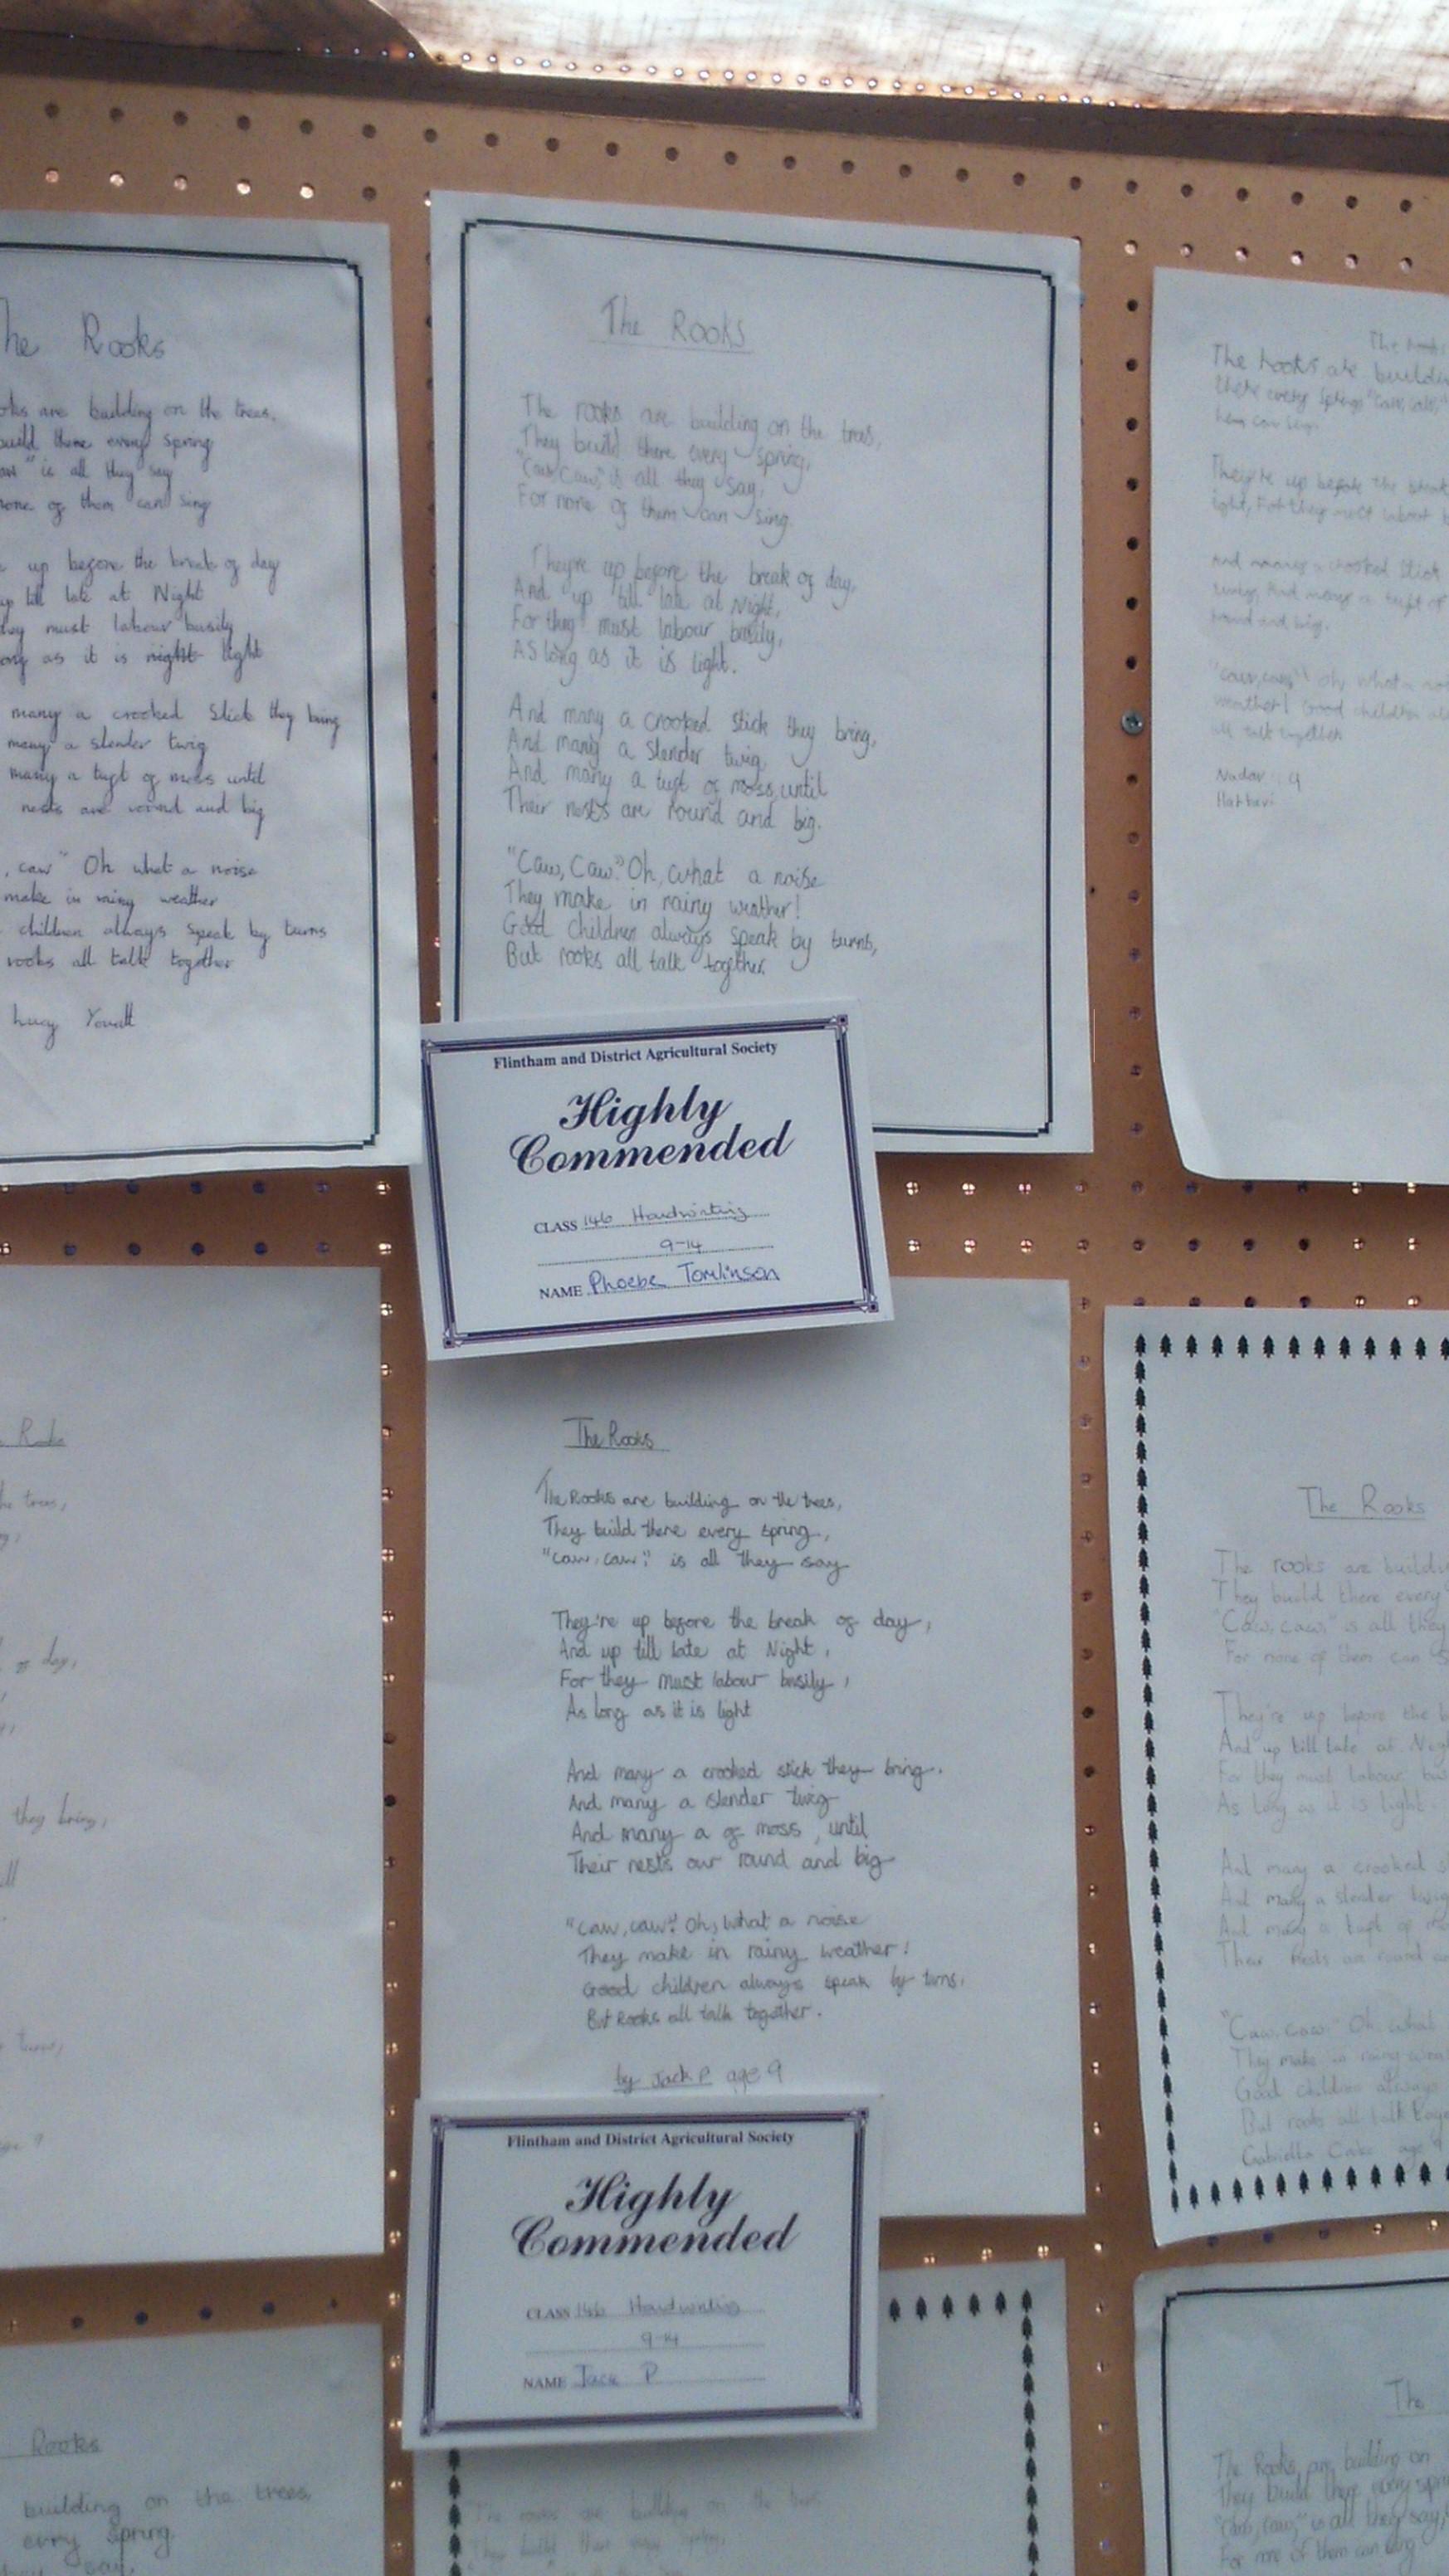 The Rooks
oks are building on the trees.
build there every spring
aw" is all they say
none of them can sing
up before the break of day
up till late at Night
they must labour busily
ong as it is night light
many a crooked Stick they bring
many a slender twig
many a tuft of moss until
nests are round and big
, caw" Oh what a noise
make in rainy weather
children always speak by turns
rooks all talk together
Lucy
The Rooks
The rooks are building on the trees,
They build there every spring,
"Caw, Caw," is all they say,
For none of them can sing
They're up before the break of day,
And up till late at Night,
For they must labour busily,
As long as it is light.
And many a crooked stick they bring,
And many a slender twig,
And many a tuft of moss, until
Their nests are round and big.
"Caw, Caw." Oh, what a noise
They make in rainy weather!
Good children always speak by turns,
But rooks all talk together.
Flintham and District Agricultural Society
Highly
Commended
CLASS 146 Handwriting
9-14
NAME Phoebe Tomlinson
The
The rooks are buildin
there every spring "Caw, caw,"
They're up before the break
light, For they must labour b
And many a crooked stick
twig, And many a tuft of
round and big.
"caw, caw" Oh what a noi
weather! Good children al
all talk together
Nadav 9
the trees,
of day,
they bring,
The Rooks
The Rooks are building on the trees,
They build there every spring,
"caw, caw." is all they say
They're up before the break of day,
And up till late at Night,
For they must labour busily,
As long as it is light
And many a crooked stick they bring.
And many a slender twig
And many a of moss, until
Their nests our round and big
"caw, caw". Oh, what a noise
They make in rainy weather!
Good children always speak by turns.
But Rooks all talk together.
by Jack P age 9
Flintham and District Agricultural Society
Highly
Commended
CLASS 146 Handwriting
9-14
NAME Jack P
The Rooks
The rooks are buildin
They build there every
"Caw, caw," is all they
For none of them can s
They're up before the b
And up till late at Nig
For they must labour bus
As long as it is light.
And many a crooked s
And many a slender twig
And many a tuft of m
Their Nests are round a
"Caw, caw." Oh, what
They make in rainy weat
Good children always
But rooks all talk tog
Gabriella Cake age 9
Rooks
building on the trees,
evry spring.
they say,
The rooks are building on the trees
They build there every spring,
The
The Rooks are building on
They build there every spri
"Caw, caw," is all they say,
For none of them can sing